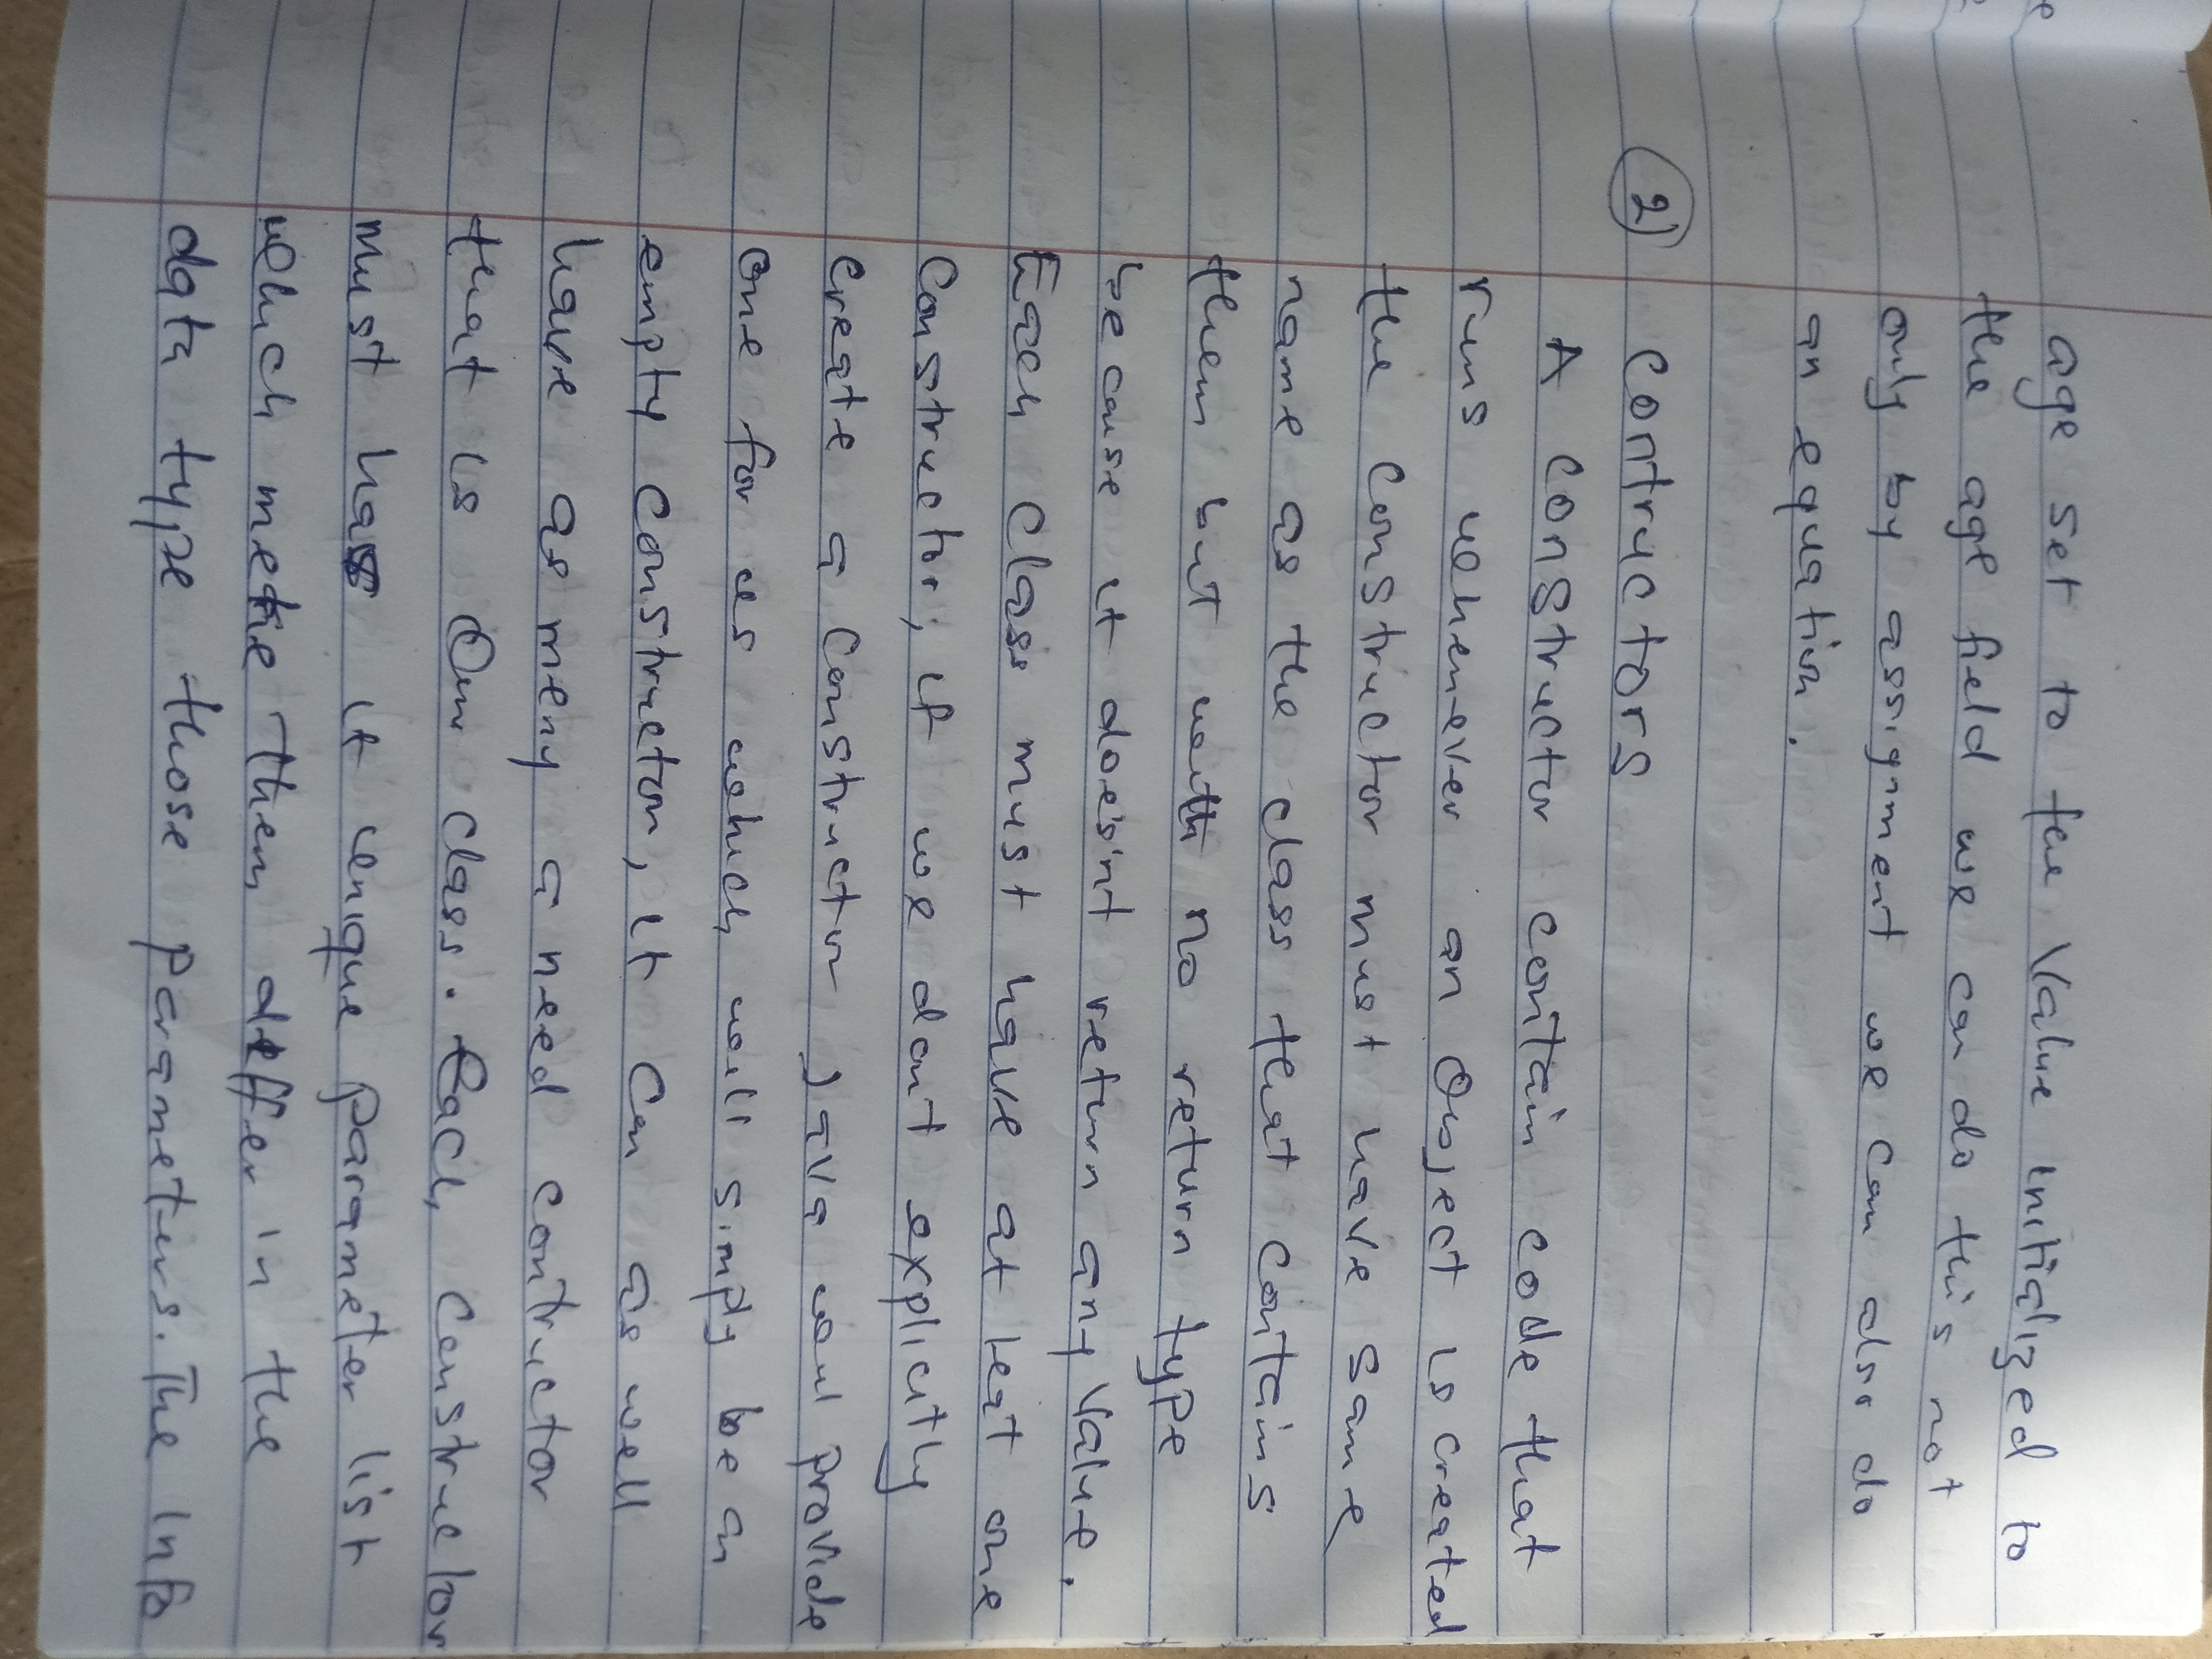 age set to the Value initialized to
the age field we can do this not
only by assignment we can also do
an equation.
2) Contructors
A constructor contain code that
runs whenever an Object is created
the constructor must have same
name as the class that contains
them but with no return type
because it does'nt return any value.
Each class must have at leat one
constructor, if we dont explicitly
create a constructor Java will provide
one for us which will simply be an
empty constructor, it can as well
have as meny a need contructor
that is Our class. Each constructor
must has it unique parameter list
which meke them deffer in the
data type those parameters. The info